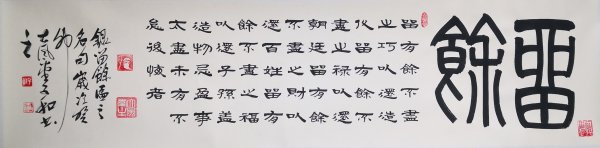 畱餘
畱有餘不盡
之巧以還造
化畱有餘不
盡之祿以還
朝廷畱有餘
不盡之財以
還百姓畱有
餘不盡之福
以還子孫蓋
造物忌盈事
太盡未有不
貽後悔者
錄留餘匾之
名句歲次